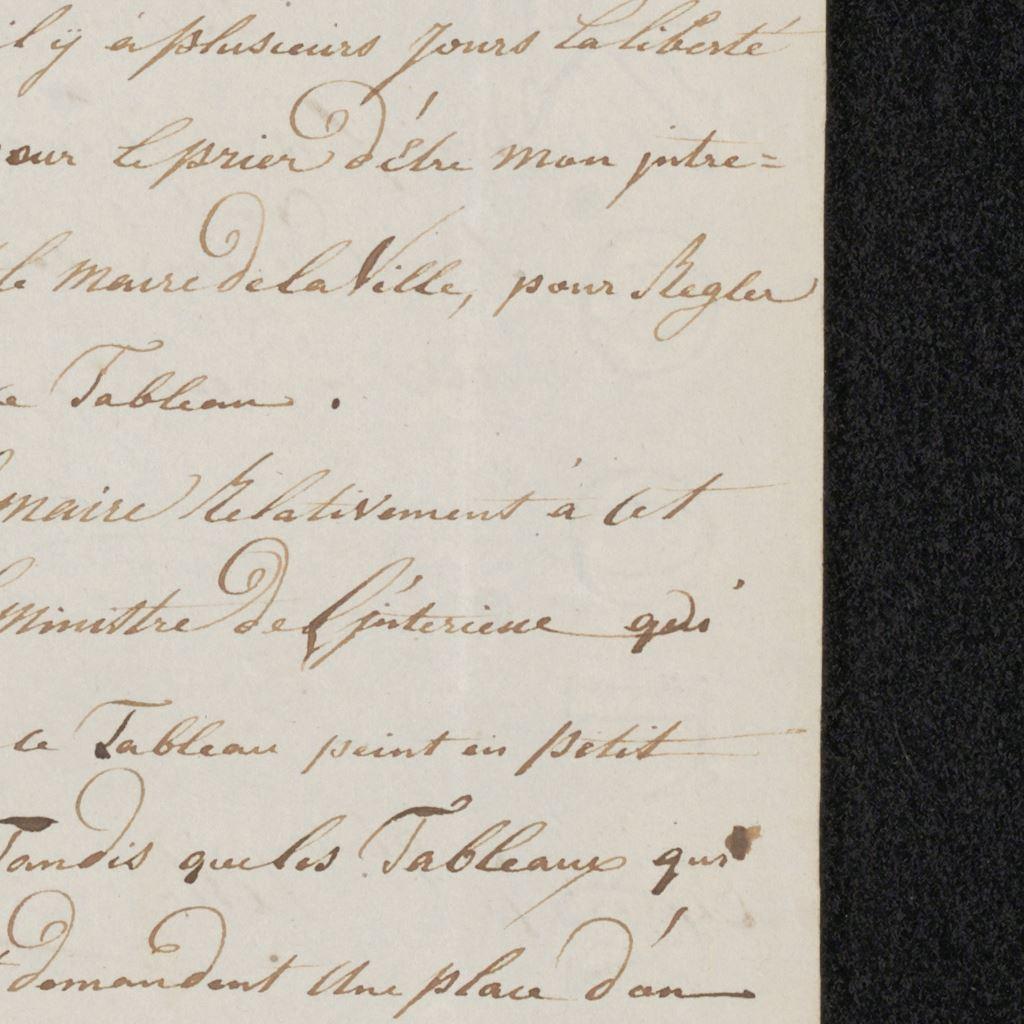 il ÿ à plusieurs Jours La liberté
pour le prier d'Être mon jntre=
le maire de la Ville, pour Regler
ce Tableau.
maire Relativement à cet
ministre de l'jnterieur qui
ce Tableau peint en petit
Tandis que les Tableaux qui
demandent Une place d'on